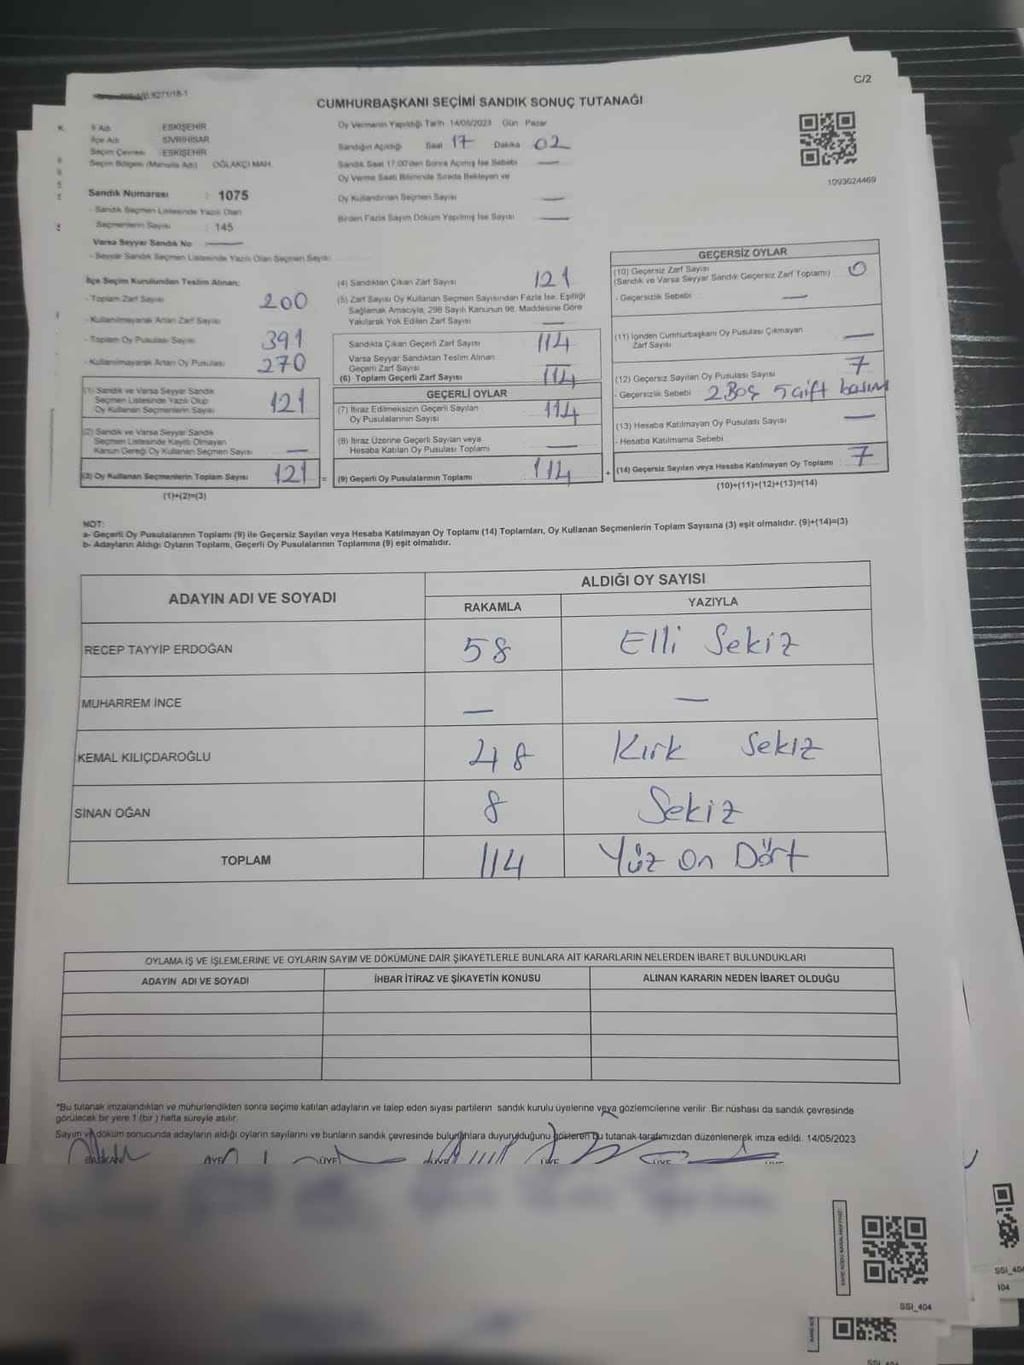 C/2
CUMHURBAŞKANI SEÇİMİ SANDIK SONUÇ TUTANAĞI
İl Adı ESKİŞEHİR
İlçe Adı SİVRİHİSAR
Seçim Çevresi ESKİŞEHİR
Seçim Bölgesi (Mahalle Adı) OĞLAKÇI MAH.
Sandık Numarası : 1075
- Sandık Seçmen Listesinde Yazılı Olan
Seçmenlerin Sayısı : 145
Varsa Seyyar Sandık No
- Seyyar Sandık Seçmen Listesinde Yazılı Olan Seçmen Sayısı
Oy Vermenin Yapıldığı Tarih 14/05/2023 Gün Pazar
Sandığın Açıldığı Saat 17 Dakika 02
Sandık Saat 17.00'den Sonra Açılmış İse Sebebi —
Oy Verme Saati Bitiminde Sırada Bekleyen ve
Oy Kullandırılan Seçmen Sayısı —
Birden Fazla Sayım Döküm Yapılmış İse Sayısı —
1093024469
İlçe Seçim Kurulundan Teslim Alınan;
- Toplam Zarf Sayısı 200
- Kullanılmayarak Artan Zarf Sayısı
- Toplam Oy Pusulası Sayısı 391
- Kullanılmayarak Artan Oy Pusulası 270
(1) Sandık ve Varsa Seyyar Sandık
Seçmen Listesinde Yazılı Olup
Oy Kullanan Seçmenlerin Sayısı 121
(2) Sandık ve Varsa Seyyar Sandık
Seçmen Listesinde Kayıtlı Olmayan
Kanun Gereği Oy Kullanan Seçmen Sayısı —
(3) Oy Kullanan Seçmenlerin Toplam Sayısı 121 =
(1)+(2)=(3)
(4) Sandıktan Çıkan Zarf Sayısı 121
(5) Zarf Sayısı Oy Kullanan Seçmen Sayısından Fazla İse, Eşitliği
Sağlamak Amacıyla, 298 Sayılı Kanunun 98. Maddesine Göre
Yakılarak Yok Edilen Zarf Sayısı —
Sandıkta Çıkan Geçerli Zarf Sayısı 114
Varsa Seyyar Sandıktan Teslim Alınan
Geçerli Zarf Sayısı
(6) Toplam Geçerli Zarf Sayısı 114
GEÇERLİ OYLAR
(7) İtiraz Edilmeksizin Geçerli Sayılan
Oy Pusulalarının Sayısı 114
(8) İtiraz Üzerine Geçerli Sayılan veya
Hesaba Katılan Oy Pusulası Toplamı —
(9) Geçerli Oy Pusulalarının Toplamı 114 +
GEÇERSİZ OYLAR
(10) Geçersiz Zarf Sayısı
(Sandık ve Varsa Seyyar Sandık Geçersiz Zarf Toplamı) 0
- Geçersizlik Sebebi —
(11) İçinden Cumhurbaşkanı Oy Pusulası Çıkmayan
Zarf Sayısı —
(12) Geçersiz Sayılan Oy Pusulası Sayısı 7
- Geçersizlik Sebebi 2 Boş 5 çift basım
(13) Hesaba Katılmayan Oy Pusulası Sayısı —
- Hesaba Katılmama Sebebi
(14) Geçersiz Sayılan veya Hesaba Katılmayan Oy Toplamı 7
(10)+(11)+(12)+(13)=(14)
NOT:
a- Geçerli Oy Pusulalarının Toplamı (9) ile Geçersiz Sayılan veya Hesaba Katılmayan Oy Toplamı (14) Toplamları, Oy Kullanan Seçmenlerin Toplam Sayısına (3) eşit olmalıdır. (9)+(14)=(3)
b- Adayların Aldığı Oyların Toplamı, Geçerli Oy Pusulalarının Toplamına (9) eşit olmalıdır.
ADAYIN ADI VE SOYADI ALDIĞI OY SAYISI
RAKAMLA YAZIYLA
RECEP TAYYİP ERDOĞAN 58 Elli Sekiz
MUHARREM İNCE — —
KEMAL KILIÇDAROĞLU 48 Kırk Sekiz
SİNAN OĞAN 8 Sekiz
TOPLAM 114 Yüz On Dört
OYLAMA İŞ VE İŞLEMLERİNE VE OYLARIN SAYIM VE DÖKÜMÜNE DAİR ŞİKAYETLERLE BUNLARA AİT KARARLARIN NELERDEN İBARET BULUNDUKLARI
ADAYIN ADI VE SOYADI İHBAR İTİRAZ VE ŞİKAYETİN KONUSU ALINAN KARARIN NEDEN İBARET OLDUĞU
*Bu tutanak imzalandıktan ve mühürlendikten sonra seçime katılan adayların ve talep eden siyasi partilerin sandık kurulu üyelerine veya gözlemcilerine verilir. Bir nüshası da sandık çevresinde
görülecek bir yere 1 (bir) hafta süreyle asılır.
Sayım ve döküm sonucunda adayların aldığı oyların sayılarını ve bunların sandık çevresinde bulunanlara duyurulduğunu gösteren bu tutanak tarafımızdan düzenlenerek imza edildi. 14/05/2023
BAŞKAN ÜYE ÜYE ÜYE ÜYE ÜYE ÜYE
SSI_404